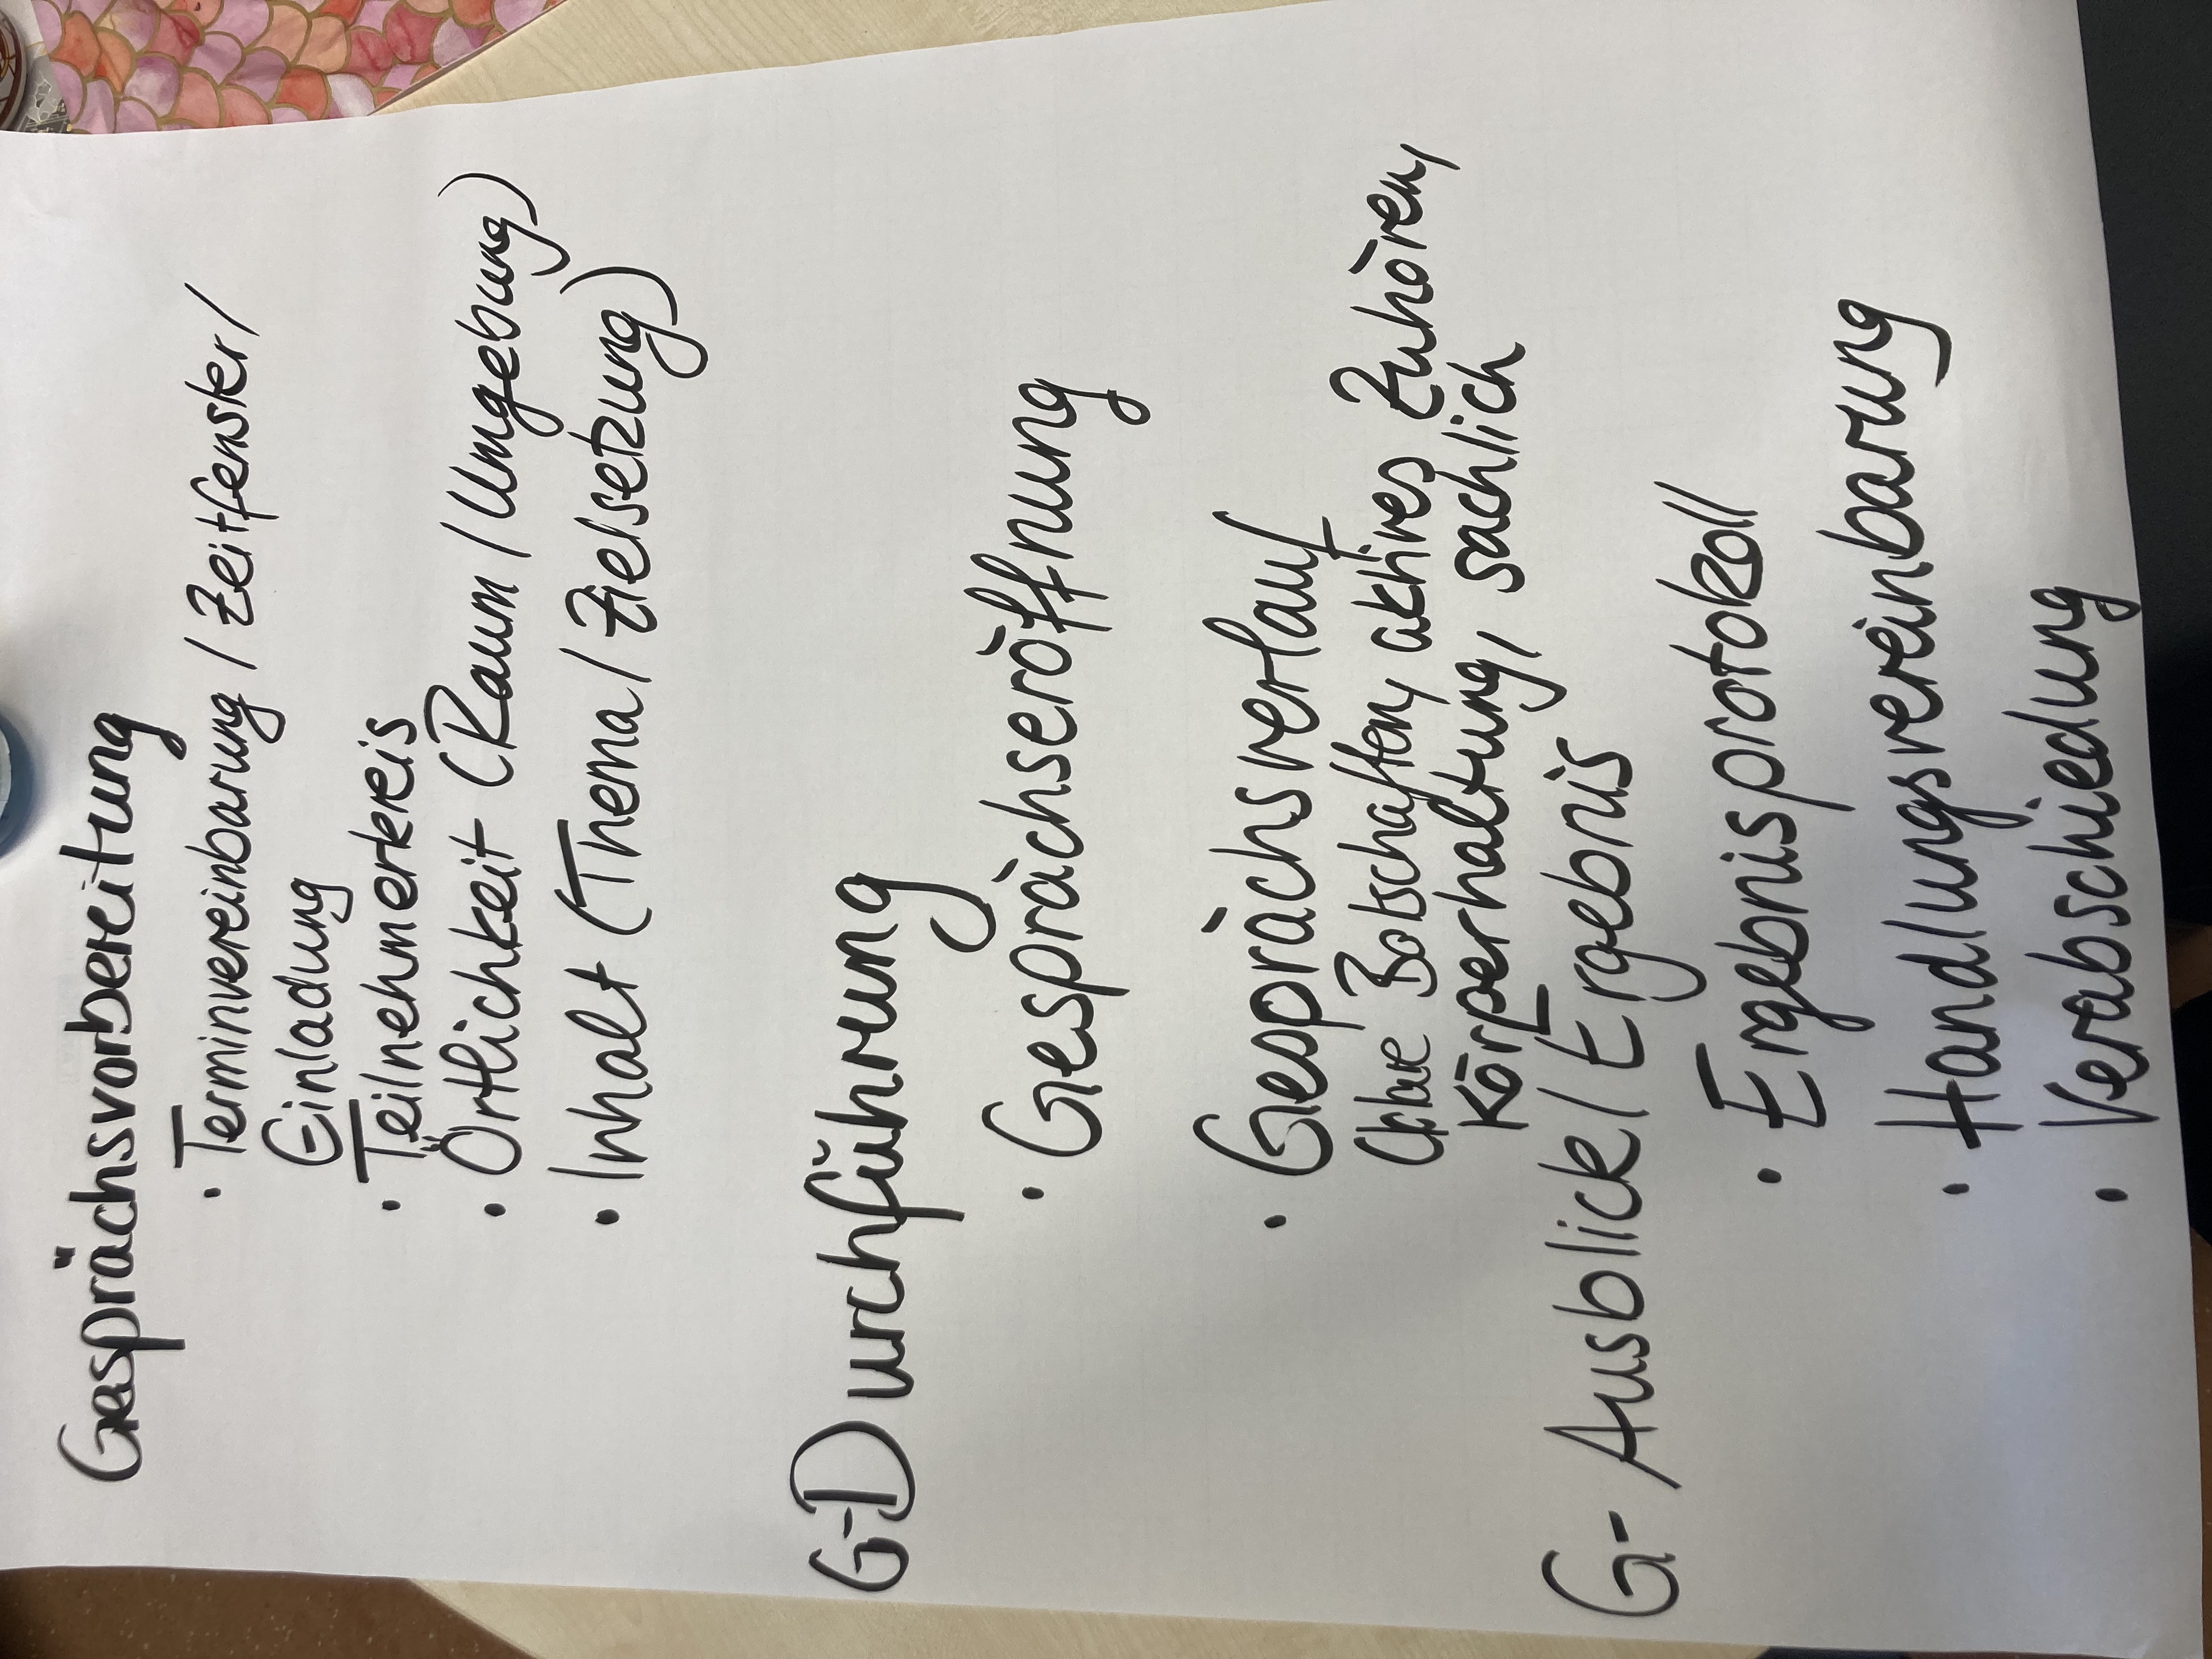 Gesprächsvorbereitung
• Terminvereinbarung / Zeitfenster /
Einladung
• Teilnehmerkreis
• Örtlichkeit (Raum / Umgebung)
• Inhalt (Thema / Zielsetzung)
G-Durchführung
• Gesprächseröffnung
• Gesprächsverlauf
Botschaften, aktives Zuhören,
Körperhaltung, sachlich
G- Ausblick / Ergebnis
• Ergebnisprotokoll
• Handlungsvereinbarung
• Verabschiedung